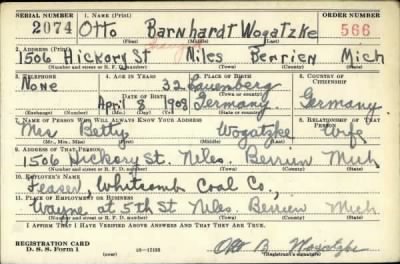 SERIAL NUMBER 1. NAME (Print) ORDER NUMBER
2074 Otto Barnhardt Wogatzke 566
(First) (Middle) (Last)
2. ADDRESS (Print)
1506 Hickory St Niles Berrien Mich
(Number and street or R. F. D. number) (Town) (County) (State)
3. TELEPHONE 4. AGE IN YEARS 5. PLACE OF BIRTH 6. COUNTRY OF CITIZENSHIP
None 32 Lauenberg
DATE OF BIRTH (Town or county)
April 8 1908 Germany Germany
(Exchange) (Number) (Mo.) (Day) (Yr.) (State or country)
7. NAME OF PERSON WHO WILL ALWAYS KNOW YOUR ADDRESS 8. RELATIONSHIP OF THAT PERSON
Mrs Betty Wogatzke Wife
(Mr., Mrs., Miss) (First) (Middle) (Last)
9. ADDRESS OF THAT PERSON
1506 Hickory St. Niles. Berrien Mich
(Number and street or R. F. D. number) (Town) (County) (State)
10. EMPLOYER'S NAME
Whitcomb Coal Co.,
11. PLACE OF EMPLOYMENT OR BUSINESS
Wayne at 5th St Niles. Berrien Mich
(Number and street or R. F. D. number) (Town) (County) (State)
I AFFIRM THAT I HAVE VERIFIED ABOVE ANSWERS AND THAT THEY ARE TRUE.
REGISTRATION CARD
D. S. S. Form 1 Otto B. Wogatzke
(Registrant's signature)